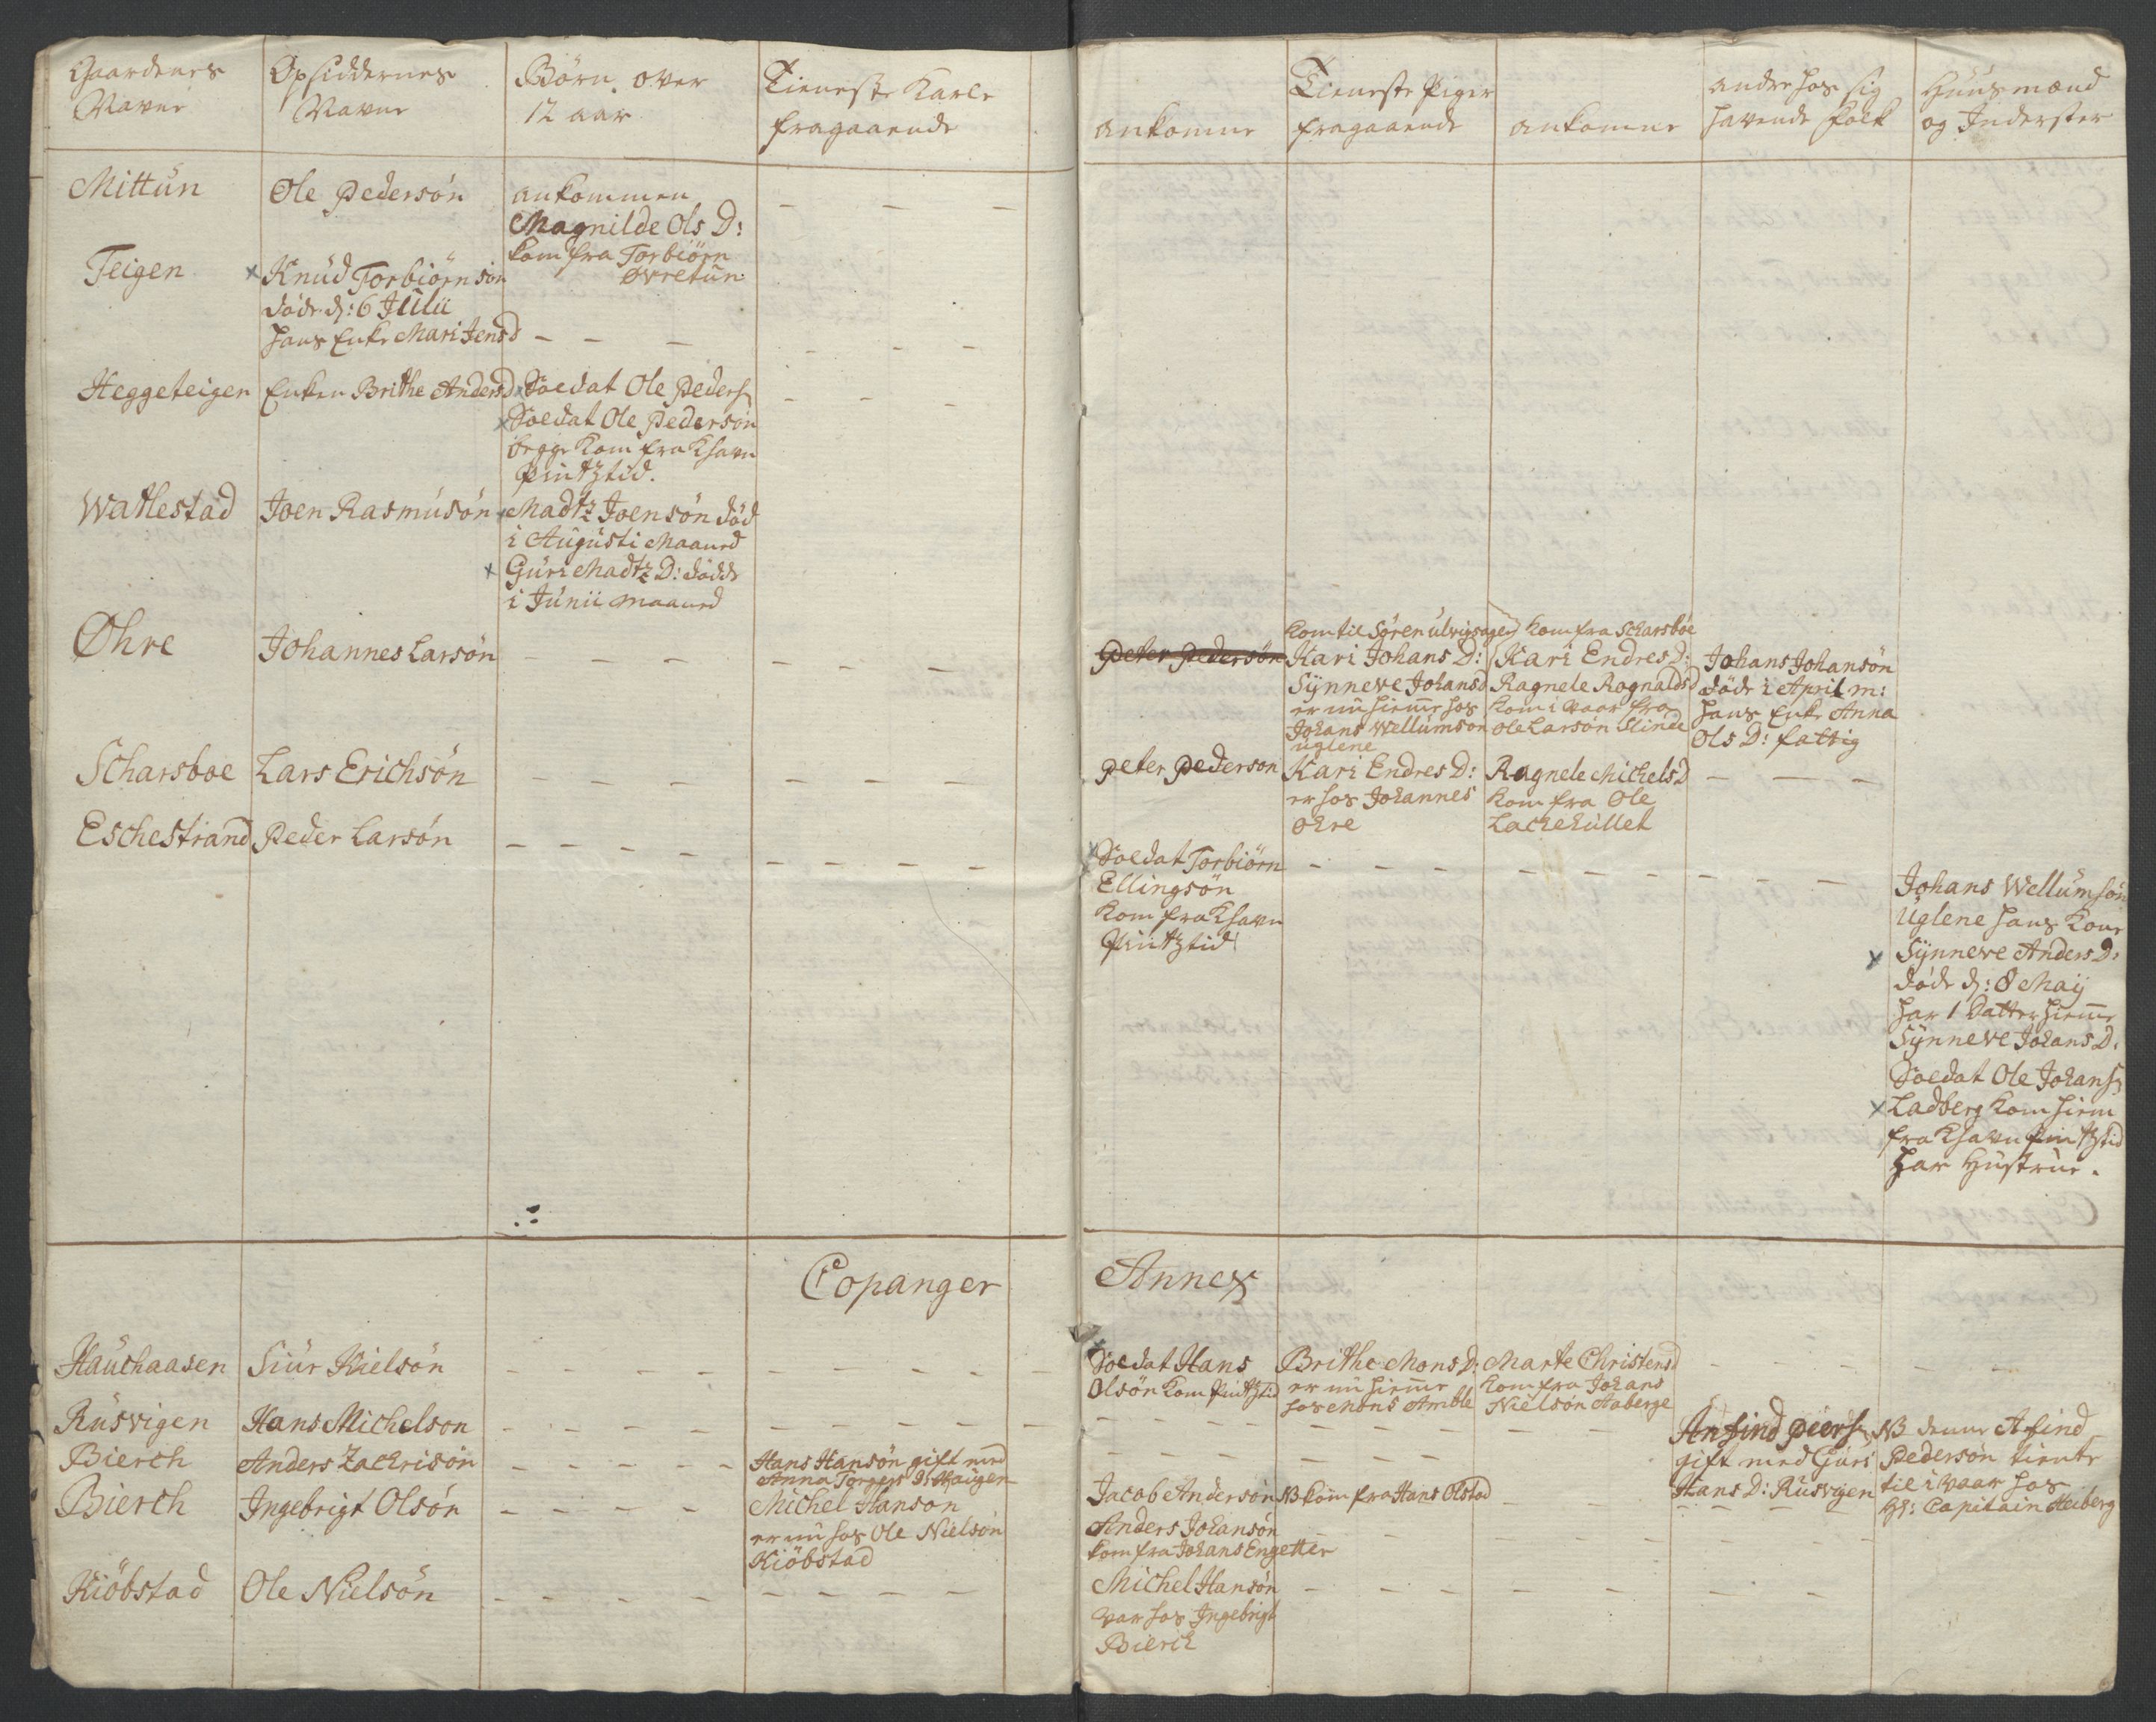 Gaardenes
Navne
Opsiddernes
Navne
Börn over
12 aar
Tieneste Karle
fragaaende
ankomne
Tieneste Piger
fragaaende
ankomne
andre hos sig
havende folk
Huusmænd
og Inderster
Mittun
Ole Pedersön
ankommen
Magnilde Ols D:
kom fra Torbiörn
Øvretun
Teigen
Knud Torbiörnsön
döde d: 6 Julii
hans Enke Mari Jensd
Heggeteigen
Enken Brithe Andersd
Soldat Ole Peders
Soldat Ole Pedersön
begge kom fra Khavn
Pintztid.
Wattestad
Joen Rasmusön
Madtz Joensön död
i Augusti Maaned
Guri Madtz D: dödde
i Junii Maaned
Øhre
Johannes Larsön
Peter Pedersön
kom til Sören Ulvigsagen
Kari Johans D:
Synneve Johansd
er nu hieme hos
Johans Wellumson
Uglene
kom fra Scharsböe
Kari Endres D:
Ragnele Rognaldsd
kom i vaar fra
Ole Larsön Slinde
Johans Johansön
döde i April m:
hans Enke Anna
Ols D: fattig
Scharsboe
Lars Erichsön
Peter Pederson
Kari Endres D:
er hos Johannes
Ohre
Ragnele Michelsd
kom fra Ole
Lachehullet
Eschestrand
Peder Larsön
Soldat Torbiörn
Ellingsön
kom fra Khavn
Pintztid
Johans Wellumsön
Uglene hans kone
Synneve Anders D:
döde d: 8 Maij
har 1 Datter hieme
Synneve Johans D:
Soldat Ole Johans
Ladberg kom hiem
fra Khavn Pintztid
har Hustrue.
Copanger
Annex
Hauchaasen
Siur Kielsön
Soldat Hans
Olsön kom Pintztid
Brithe Mons D:
er nu hieme
hos Mons Amble
Marte Christensd
kom fra Johans
Nielsön Aaberge
Rusvigen
Hans Michelson
Bierch
Anders Zachrisön
Hans Hansön gift med
Anna Torgers D:
Anfind Peers
gift med Guri
Hans D: Rusvigen
NB denne Afind
Pedersön tiente
til i vaar hos
Hr: Capitain Heiberg
Bierch
Ingebrigt Olsön
Michel Hanson
er nu hos Ole Nielsön
Kiöbstad
Jacob Andersön NB kom fra Hans Olstad
Anders Johansön
kom fra Johans Engetter
Kiöbstad
Ole Nielsön
Michel Hansön
var hos Ingebrigt
Bierch